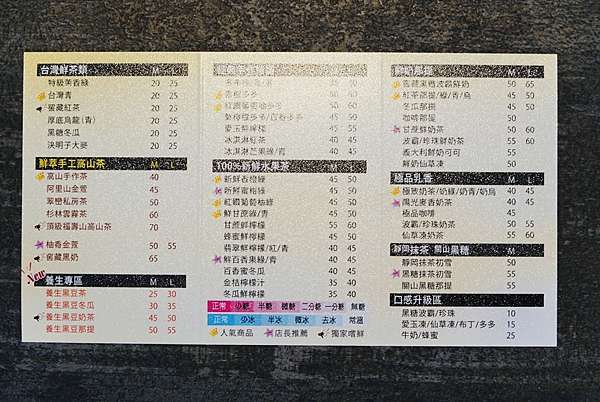 台灣鮮茶類 M L
特級茉香綠 20 25
台灣青 20 25
蜜藏紅茶 20 25
厚底烏龍/青 20 25
黑糖冬瓜 20 25
決明子大麥 20 25
鮮萃手工高山茶 M L
高山手作茶 40
阿里山金萱 45
翠巒私房茶 50
杉林雲霧茶 60
頂級福壽山高山茶 70
柚香金萱 50 55
蜜藏黑奶 65
New
養生專區 M L
養生黑豆茶 25 30
養生黑豆冬瓜 30 35
養生黑豆奶茶 45 50
養生黑豆那提 50 55
M L
35 45
多多 40 50
40 50
檸檬多多/百香多多 40 50
愛玉鮮檸檬 45 55
冰淇淋紅茶 35 45
冰淇淋芒果綠/青 40 50
100%新鮮水果茶 M L
新鮮香橙綠 40 50
新鮮蜜柚綠 40 50
紅鑽葡萄柚綠 40 50
鮮甘蔗綠/青 40 50
甘蔗鮮檸檬 50 60
蜂蜜鮮檸檬 40 50
翡翠鮮檸檬/紅/青 40 45
鮮百香果綠/青 40 45
百香蜜冬瓜 40 45
金桔檸檬汁 35 40
冬瓜鮮檸檬 35 40
正常 少糖 半糖 微糖 二分糖 一分糖 無糖
正常 少冰 半冰 微冰 去冰 常溫
人氣商品 店長推薦 獨家嚐鮮
那提 M L
蜜藏黑糖波霸鮮奶 50 65
紅茶那提/綠/青/烏 45 50
冬瓜那樹 45 50
咖啡那提 50
甘蔗鮮奶茶 50 60
波霸/珍珠鮮奶茶 55 60
義大利鮮奶可可 55
鮮奶仙草凍 55
極品乳香 M L
極致奶茶/奶綠/奶青/奶烏 40 45
陽光麥香奶茶 40 45
極品咖啡 45
波霸/珍珠奶茶 50 55
仙草凍奶茶 55 60
靜岡抹茶 關山黑糖 M
靜岡抹茶初雪 50
黑糖抹茶初雪 50
關山黑糖那提 50
口感升級區
黑糖波霸/珍珠 10
愛玉凍/仙草凍/布丁/多多 15
牛奶/蜂蜜 25